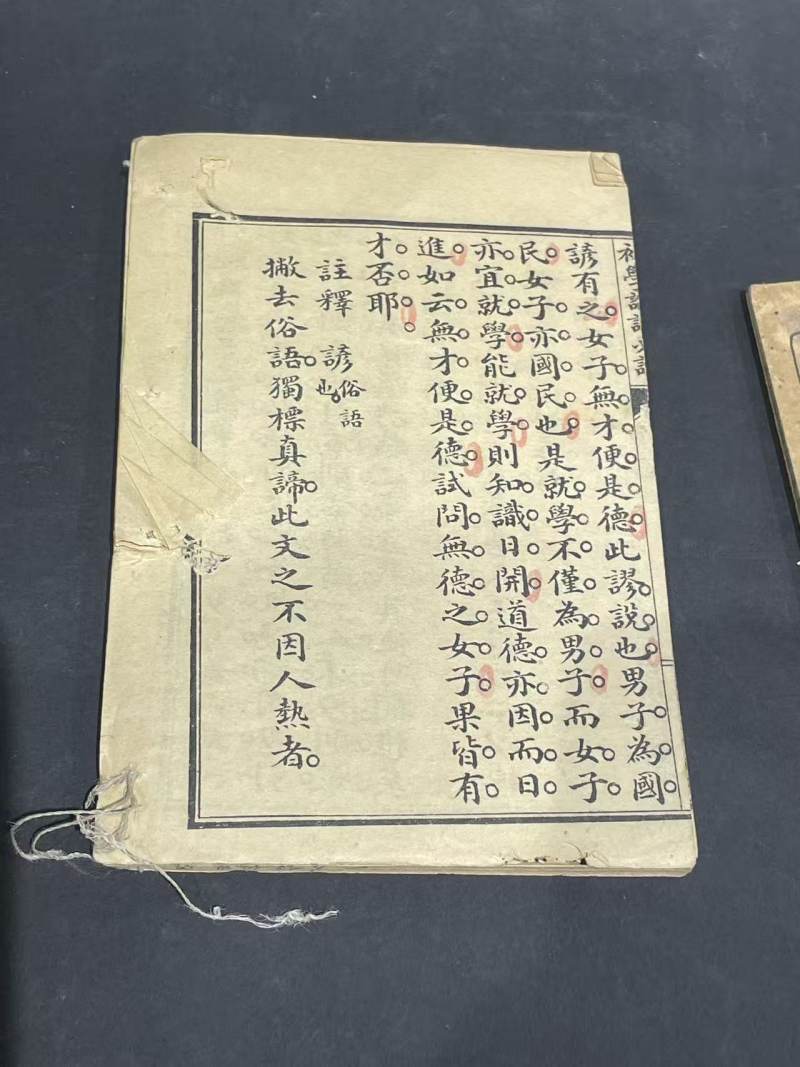 諺有之女子無才便是德此謬說也男子為國
民女子亦國民也是就學不僅為男子而女子
亦宜就學能就學則知識日開道德亦因而日
進如云無才便是德試問無德之女子果皆有
才否耶
註釋 諺俗語也
撇去俗語獨標真諦此文之不因人熱者